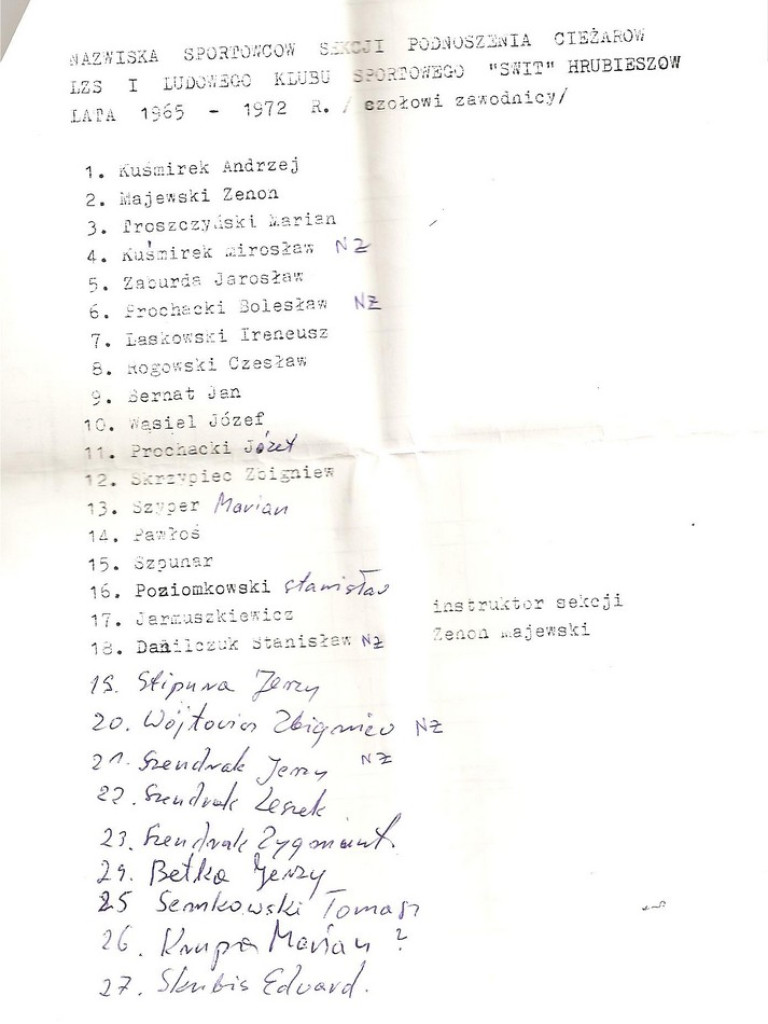 NAZWISKA SPORTOWCOW SEKCJI PODNOSZENIA CIEŻAROW
LZS I LUDOWEGO KLUBU SPORTOWEGO "SWIT" HRUBIESZOW
LATA 1965 - 1972 R. / czołowi zawodnicy/
1. Kuśmirek Andrzej
2. Majewski Zenon
3. Proszczyński Marian
4. Kuśmirek Mirosław NŻ
5. Zaburda Jarosław
6. Prochacki Bolesław NŻ
7. Laskowski Ireneusz
8. Rogowski Czesław
9. Bernat Jan
10. Wąsiel Józef
11. Prochacki Józef
12. Skrzypiec Zbigniew
13. Szyper Marian
14. Pawłoś
15. Szpunar
16. Poziomkowski Stanisław
17. Jarmuszkiewicz
18. Danilczuk Stanisław NŻ
instruktor sekcji
Zenon Majewski
19. Stipura Jerzy
20. Wójtowicz Zbigniew NŻ
21. Szendrak Jerzy NŻ
22. Szendrak Leszek
23. Szendrak Zygmunt.
24. Betka Jerzy
25 Semkowski Tomasz
26. Krupa Marian ?
27. Skubis Edward.